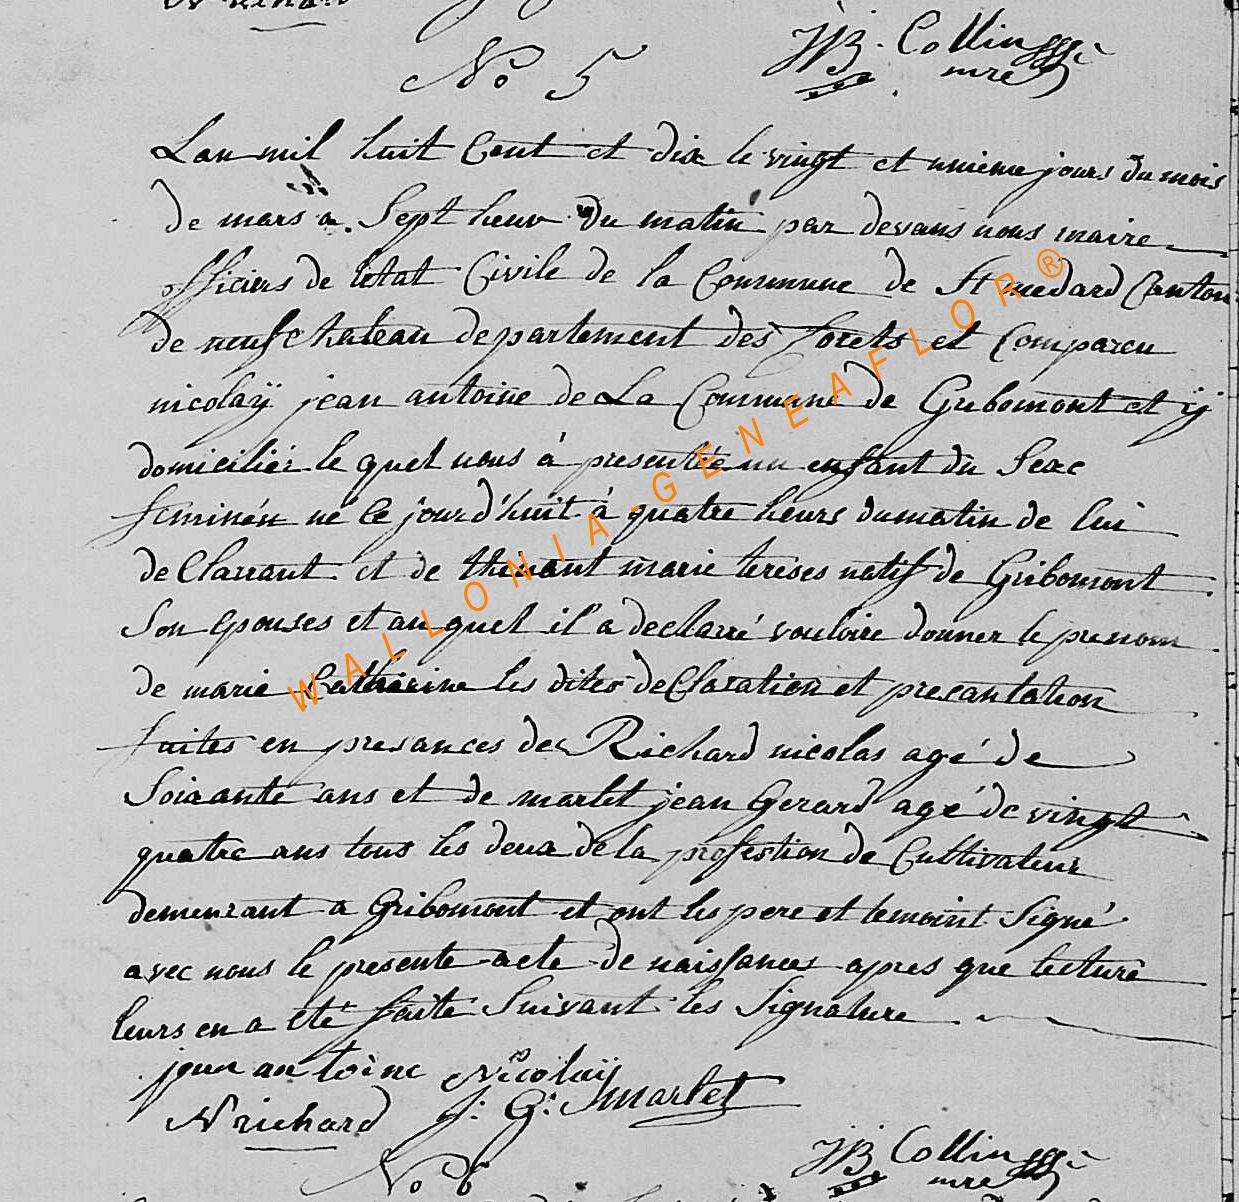 N richard
JB. Collin
mre
No 5
Lan mil huit Cent et dix le vingt et unieme jours du mois
de mars a Sept heur du matin par devans nous maire
officiers de letat Civile de la Commune de St medard Canton
de neufchateau departement des forets et Compareu
nicolaÿ jean antoine de La Commune de Gribomont et ÿ
domiciliéz le quel nous à presentée un enfant du Sexe
feminén né Ce jour d'huit à quatre heurs du matin de lui
de Clarrant et de thenant marie tereses natif de Gribomont
Son epouses et au quel il a declarré vouloire donner le prenom
de marie Catherine les dites deClaration et presantation
faites en presances de Richard nicolas agé de
Soixante ans et de martet jean Gerard agé de vingt
quatre ans tous les deux de la profestion de Cultivateur
demeurant a Gribomont et ont les pere et temoint Signé
avec nous le presente acte de naissances apres que lecture
leurs en a eté faite Suivant les Signature
jean antoine Nicolaÿ
N richard J. G. Smartet
JB Collin
mre
No 6
WALLONIA-GENEAFLOR®